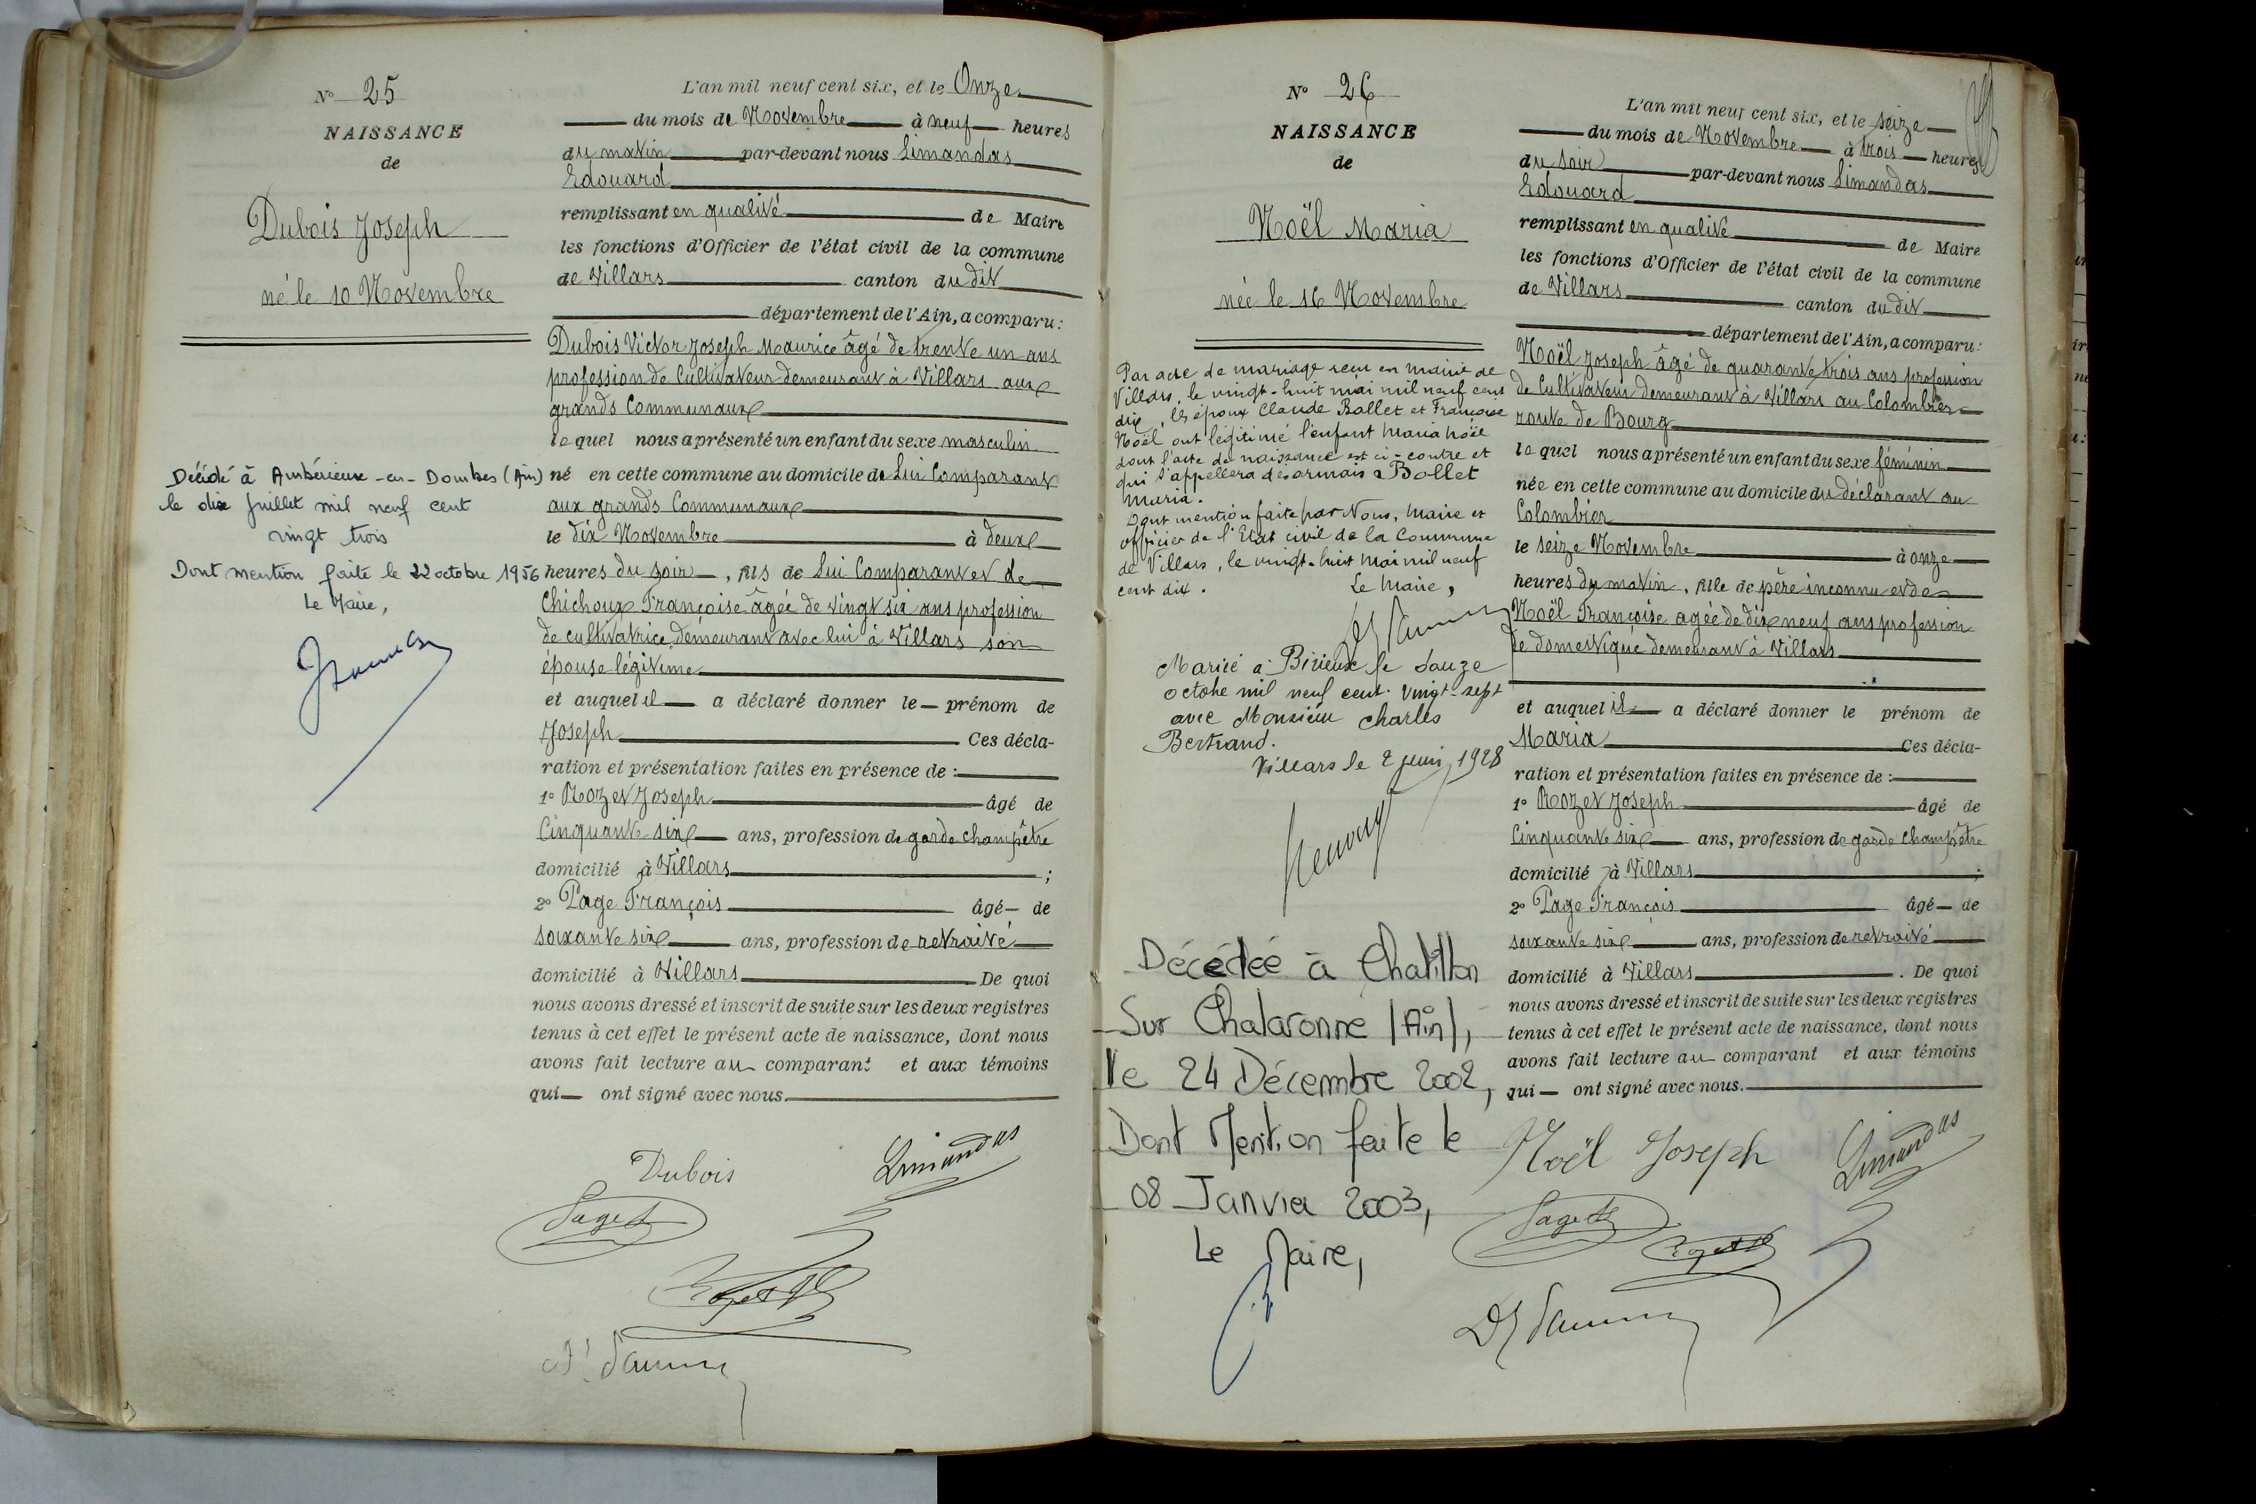 N° 25
NAISSANCE
de
Dubois Joseph
né le 10 Novembre
Décédé à Ambérieux-en-Dombes (Ain)
le dix Juillet mil neuf cent
vingt trois
Dont mention faite le 22 octobre 1956
Le Maire,
L'an mil neuf cent six, et le Onze
du mois de Novembre à neuf heures
du matin par-devant nous Limandas
Edouard
remplissant en qualité de Maire
les fonctions d'Officier de l'état civil de la commune
de Villars canton du dit
département de l'Ain, a comparu:
Dubois Victor Joseph Maurice âgé de trente un ans
profession de Cultivateur demeurant à Villars aux
grands Communaux
lequel nous a présenté un enfant du sexe masculin
né en cette commune au domicile de Lui Comparant
aux grands Communaux
le dix Novembre à deux
heures du soir, fils de Lui Comparant et de
Chichoux Françoise âgée de vingt six ans profession
de cultivatrice demeurant avec lui à Villars son
épouse légitime
et auquel il a déclaré donner le prénom de
Joseph Ces décla-
ration et présentation faites en présence de :
1° Rozet Joseph âgé de
Cinquante six ans, profession de garde champêtre
domicilié à Villars ;
2° Page François âgé de
soixante six ans, profession de retraité
domicilié à Villars De quoi
nous avons dressé et inscrit de suite sur les deux registres
tenus à cet effet le présent acte de naissance, dont nous
avons fait lecture au comparant et aux témoins
qui ont signé avec nous.
Dubois Limandas
Page
Rozet
N° 26
NAISSANCE
de
Noël Maria
née le 16 Novembre
Par acte de mariage reçu en mairie de
Villars, le vingt-huit mai mil neuf cent
dix, les époux Claude Bollet et Françoise
Noël ont légitimé l'enfant Maria Noël
dont l'acte de naissance est ci-contre et
qui s'appellera désormais Bollet
Maria.
Dont mention faite par Nous, Maire et
officier de l'Etat civil de la Commune
de Villars, le vingt-huit Mai mil neuf
cent dix.
Le Maire,
Mariée à Birieux le douze
octobre mil neuf cent vingt-sept
avec Monsieur Charles
Bertrand.
Villars le 2 juin 1928
Décédée à Chatillon
Sur Chalaronne (Ain),
le 24 Décembre 2002,
Dont Mention faite le
08 Janvier 2003,
Le Maire,
L'an mil neuf cent six, et le seize
du mois de Novembre à trois heures
du soir par-devant nous Limandas
Edouard
remplissant en qualité de Maire
les fonctions d'Officier de l'état civil de la commune
de Villars canton du dit
département de l'Ain, a comparu:
Noël Joseph âgé de quarante trois ans profession
de Cultivateur demeurant à Villars au Colombier
route de Bourg
lequel nous a présenté un enfant du sexe féminin
née en cette commune au domicile du déclarant au
Colombier
le seize Novembre à onze
heures du matin, fille de père inconnu et de
Noël Françoise agée de dix neuf ans profession
de domestique demeurant à Villars
et auquel il a déclaré donner le prénom de
Maria Ces décla-
ration et présentation faites en présence de :
1° Rozet Joseph âgé de
Cinquante six ans, profession de garde Champêtre
domicilié à Villars ;
2° Page François âgé de
soixante six ans, profession de retraité
domicilié à Villars. De quoi
nous avons dressé et inscrit de suite sur les deux registres
tenus à cet effet le présent acte de naissance, dont nous
avons fait lecture au comparant et aux témoins
qui ont signé avec nous.
Noël Joseph Limandas
Page
Rozet